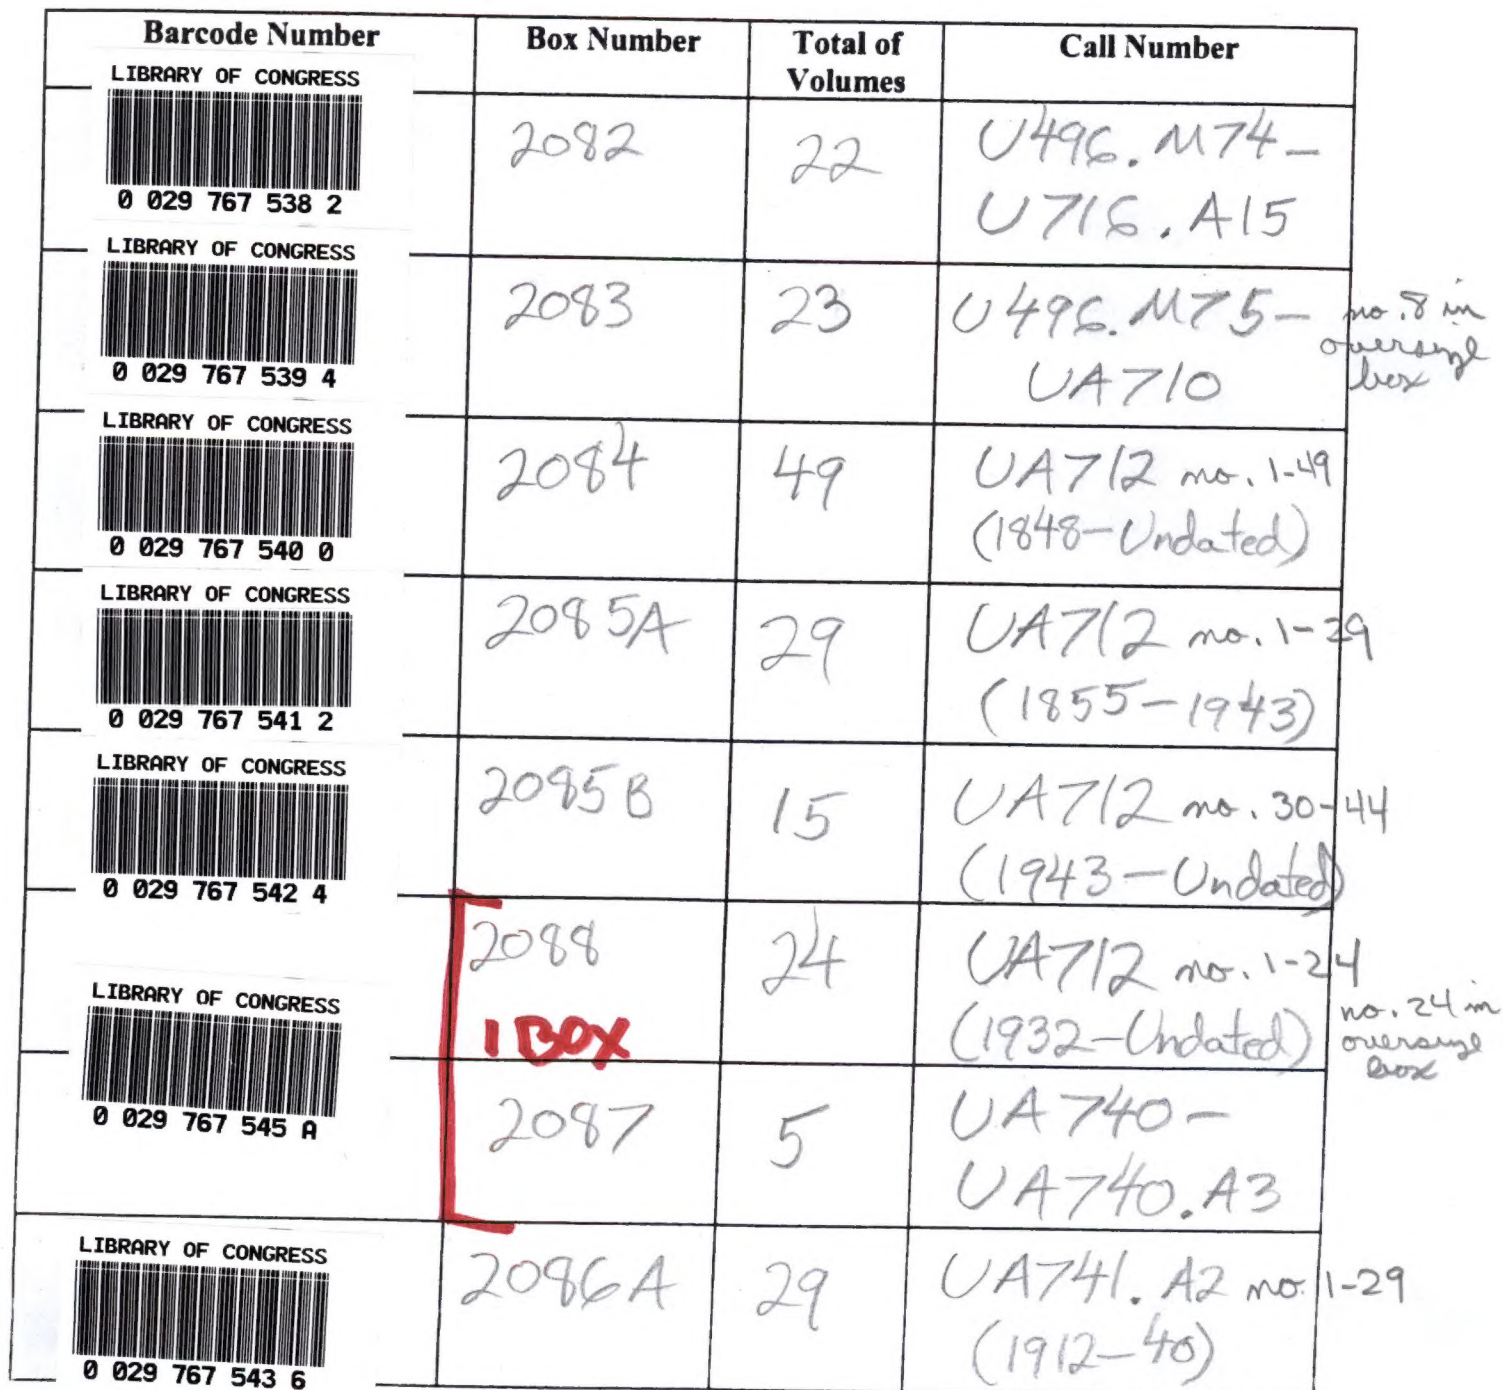 Barcode Number Box Number Total of Volumes Call Number
LIBRARY OF CONGRESS
0 029 767 538 2
2082 22 U496.M74-
U716.A15
LIBRARY OF CONGRESS
0 029 767 539 4
2083 23 U496.M75-
UA710
no. 8 in
oversize
box
LIBRARY OF CONGRESS
0 029 767 540 0
2084 49 UA712 no. 1-49
(1848-Undated)
LIBRARY OF CONGRESS
0 029 767 541 2
2085A 29 UA712 no. 1-29
(1855-1943)
LIBRARY OF CONGRESS
0 029 767 542 4
2085B 15 UA712 no. 30-44
(1943-Undated)
LIBRARY OF CONGRESS
0 029 767 545 A
2088 24 UA712 no. 1-24
1 BOX
(1932-Undated)
no. 24 in
oversize
box
2087 5 UA740-
UA740.A3
LIBRARY OF CONGRESS
0 029 767 543 6
2086A 29 UA741.A2 no. 1-29
(1912-40)